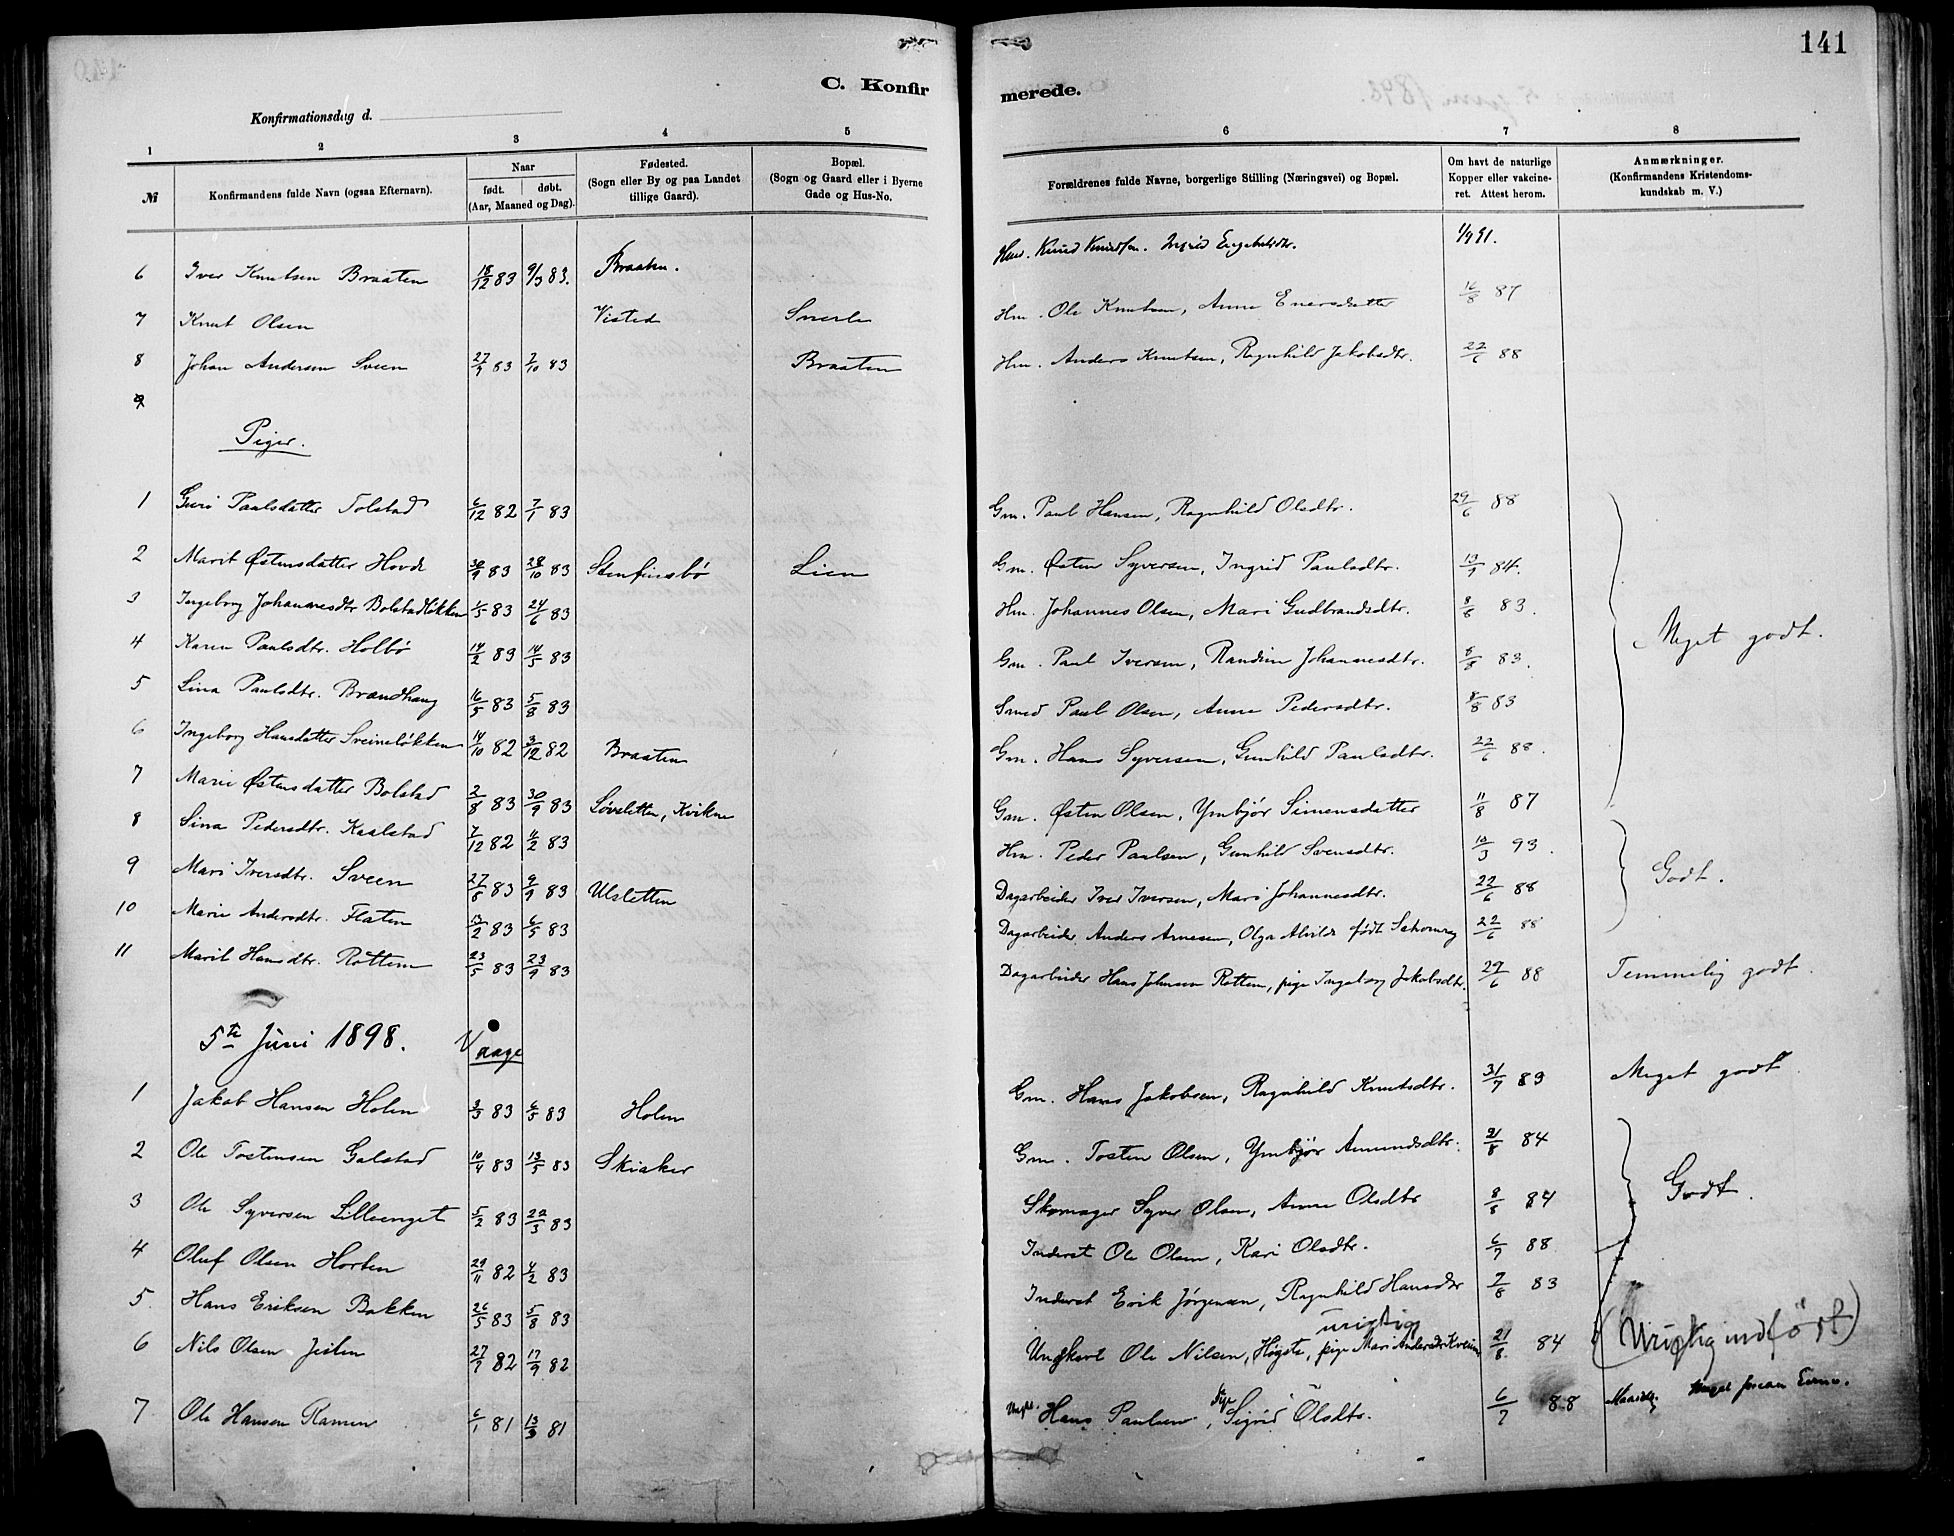 141
C. Konfirmerede.
Konfirmationsdag d.
1 2 3 4 5 6 7 8
№ Konfirmandens fulde Navn (ogsaa Efternavn). Naar født. døbt. (Aar, Maaned og Dag). Fødested. (Sogn eller By og paa Landet tillige Gaard). Bopæl. (Sogn og Gaard eller i Byerne Gade og Hus-No. Forældrenes fulde Navne, borgerlige Stilling (Næringsvei) og Bopæl. Om havt de naturlige Kopper eller vakcineret. Attest herom. Anmærkninger. (Konfirmandens Kristendomskundskab m. V.)
6 Iver Knutsen Braaten 18/12 83 9/3 83. Braaten. Hm. Knud Knudsen. Ingrid Engebretsdtr. 1/9 91.
7 Knut Olsen Visted Snerle Hm. Ole Knutsen, Anne Enersdatter 16/8 87
8 Johan Andersen Sveen 27/9 83 7/10 83 Braaten Hm. Anders Knutsen, Ragnhild Jakobsdtr. 22/6 88
9
Piger.
1 Guri Paulsdatter Tolstad 6/12 82 7/1 83 Gm. Paul Hansen, Ragnhild Olsdtr. 29/6 88
2 Marit Østensdatter Hovde 30/9 83 28/10 83 Stenfinsbø Lien Gm. Østen Syversen, Ingrid Paulsdtr. 13/9 84.
3 Ingeborg Johannesdtr Bolstadløkken 1/5 83 24/6 83 Hm. Johannes Olsen, Mari Gudbrandsdtr. 8/8 83. Meget godt.
4 Karen Paulsdtr. Holbø 14/2 83 14/5 83 Gm. Paul Iversen, Randine Johannesdtr. 8/8 83.
5 Lina Paulsdtr. Brændhaug 16/5 83 5/8 83 Smed Paul Olsen, Anne Pedersdtr. 8/8 83
6 Ingeborg Hansdatter Sveineløkken 14/10 82 3/12 82 Braaten Gm. Hans Syversen, Gunhild Paulsdtr. 22/6 88.
7 Marie Østensdatter Bolstad 2/8 83 30/9 83 Løvsletten, Kvikne Gm. Østen Olsen, Ymbjør Simensdatter 11/8 87
8 Lina Pedersdtr. Kaalstad 7/12 82 11/2 83 Hm. Peder Paulsen, Gunhild Svensdtr. 10/3 93.
9 Mari Iversdtr. Sveen 27/8 83 9/9 83 Ulsletten Dagarbeider Iver Iversen, Mari Johannesdtr. 22/6 88 Godt.
10 Marie Andersdtr. Flaten 13/2 83 6/5 83 Dagarbeider Anders Arnesen, Olga Alvilde født 22/6 88
11 Marit Hansdtr. Rottem 23/5 83 23/9 83 Dagarbeider Hans Johnsen Rottem, pige Ingeborg Jakobsdtr. 29/6 88 Temmelig godt.
5te Juni 1898. Vaage
1 Jakob Hansen Holen 3/3 83 6/5 83 Holen Gm. Hans Jakobsen, Ragnhild Knutsdtr. 31/7 89 Meget godt
2 Ole Tostensen Galstad 10/4 83 13/5 83 Skiaker Gm. Tosten Olsen, Ymbjør Amundsdtr. 21/8 84
3 Ole Syversen Lilleenget 5/2 83 22/3 83 Skomager Syver Olsen, Anne Olsdtr 8/8 84 Godt.
4 Oluf Olsen Horten 29/11 82 4/2 83 Inderst Ole Olsen, Kari Olsdtr. 6/7 88
5. Hans Eriksen Bakken 26/5 83 5/8 83 Inderst Erik Jørgensen, Ragnhild Hansdtr 7/8 83
urigtig
6 Nils Olsen 27/7 82 17/9 82 Ungkarl Ole Nilsen, Høgste, pige Mari Andersdtr Kveine 21/8. 84 (Urigtig indført)
7 Ole Hansen Ramen 6/1 81 13/3 81 Ungk. Hans Paulsen, Pige Sigrid Olsdtr. 6/7 88 Maadelig.